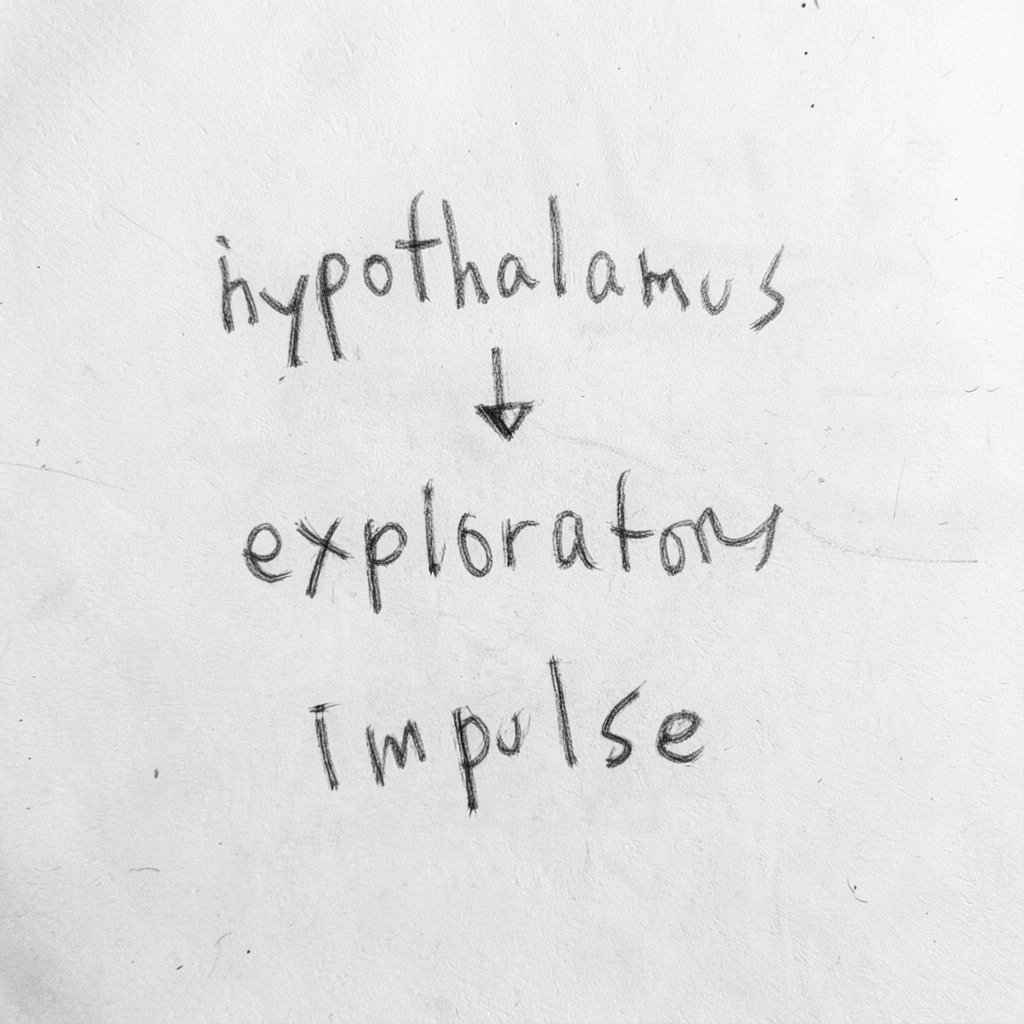 hypothalamus
↓
exploratory
impulse